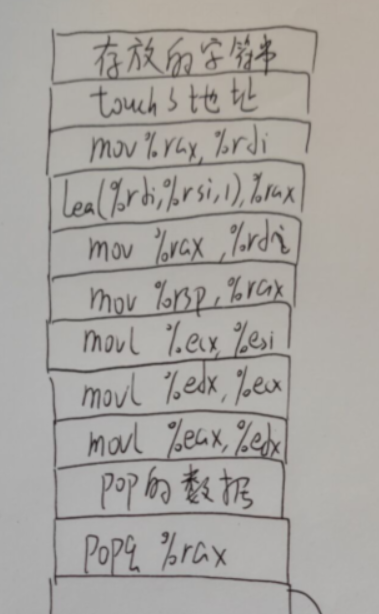 存放的字符串
touch3地址
mov %rax, %rdi
lea(%rdi,%rsi,1),%rax
mov %rax ,%rdi
mov %rsp,%rax
movl %ecx, %esi
movl %edx, %ecx
movl %eax, %edx
pop的数据
popq %rax